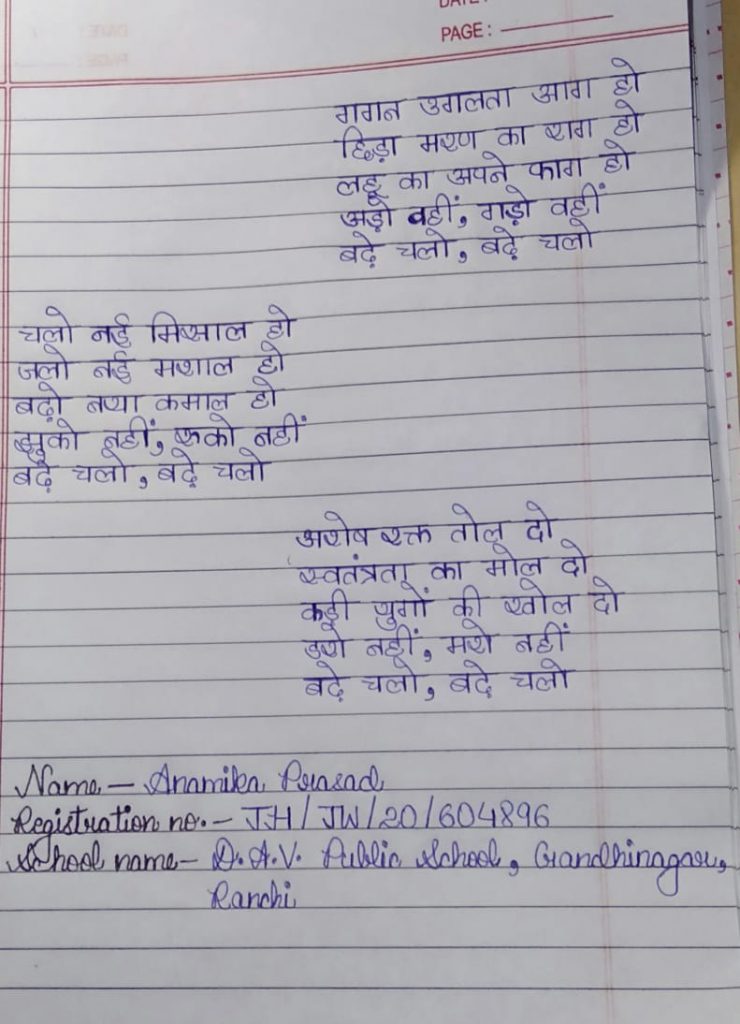 DATE:
PAGE:
गगन उगलता आग हो
छिड़ा मरण का राग हो
लहू का अपने फाग हो
अड़ो वहीं, गड़ो वहीं
बढ़े चलो, बढ़े चलो
चलो नई मिसाल हो
जलो नई मशाल हो
बढ़ो नया कमाल हो
झुको नहीं, रुको नहीं
बढ़े चलो, बढ़े चलो
अशेष रक्त तोल दो
स्वतंत्रता का मोल दो
कड़ी युगों की खोल दो
डरो नहीं, मरो नहीं
बढ़े चलो, बढ़े चलो
Name – Anamika Prasad
Registration no. – JH/JW/20/604896
School name – D.A.V. Public School, Gandhinagar,
Ranchi